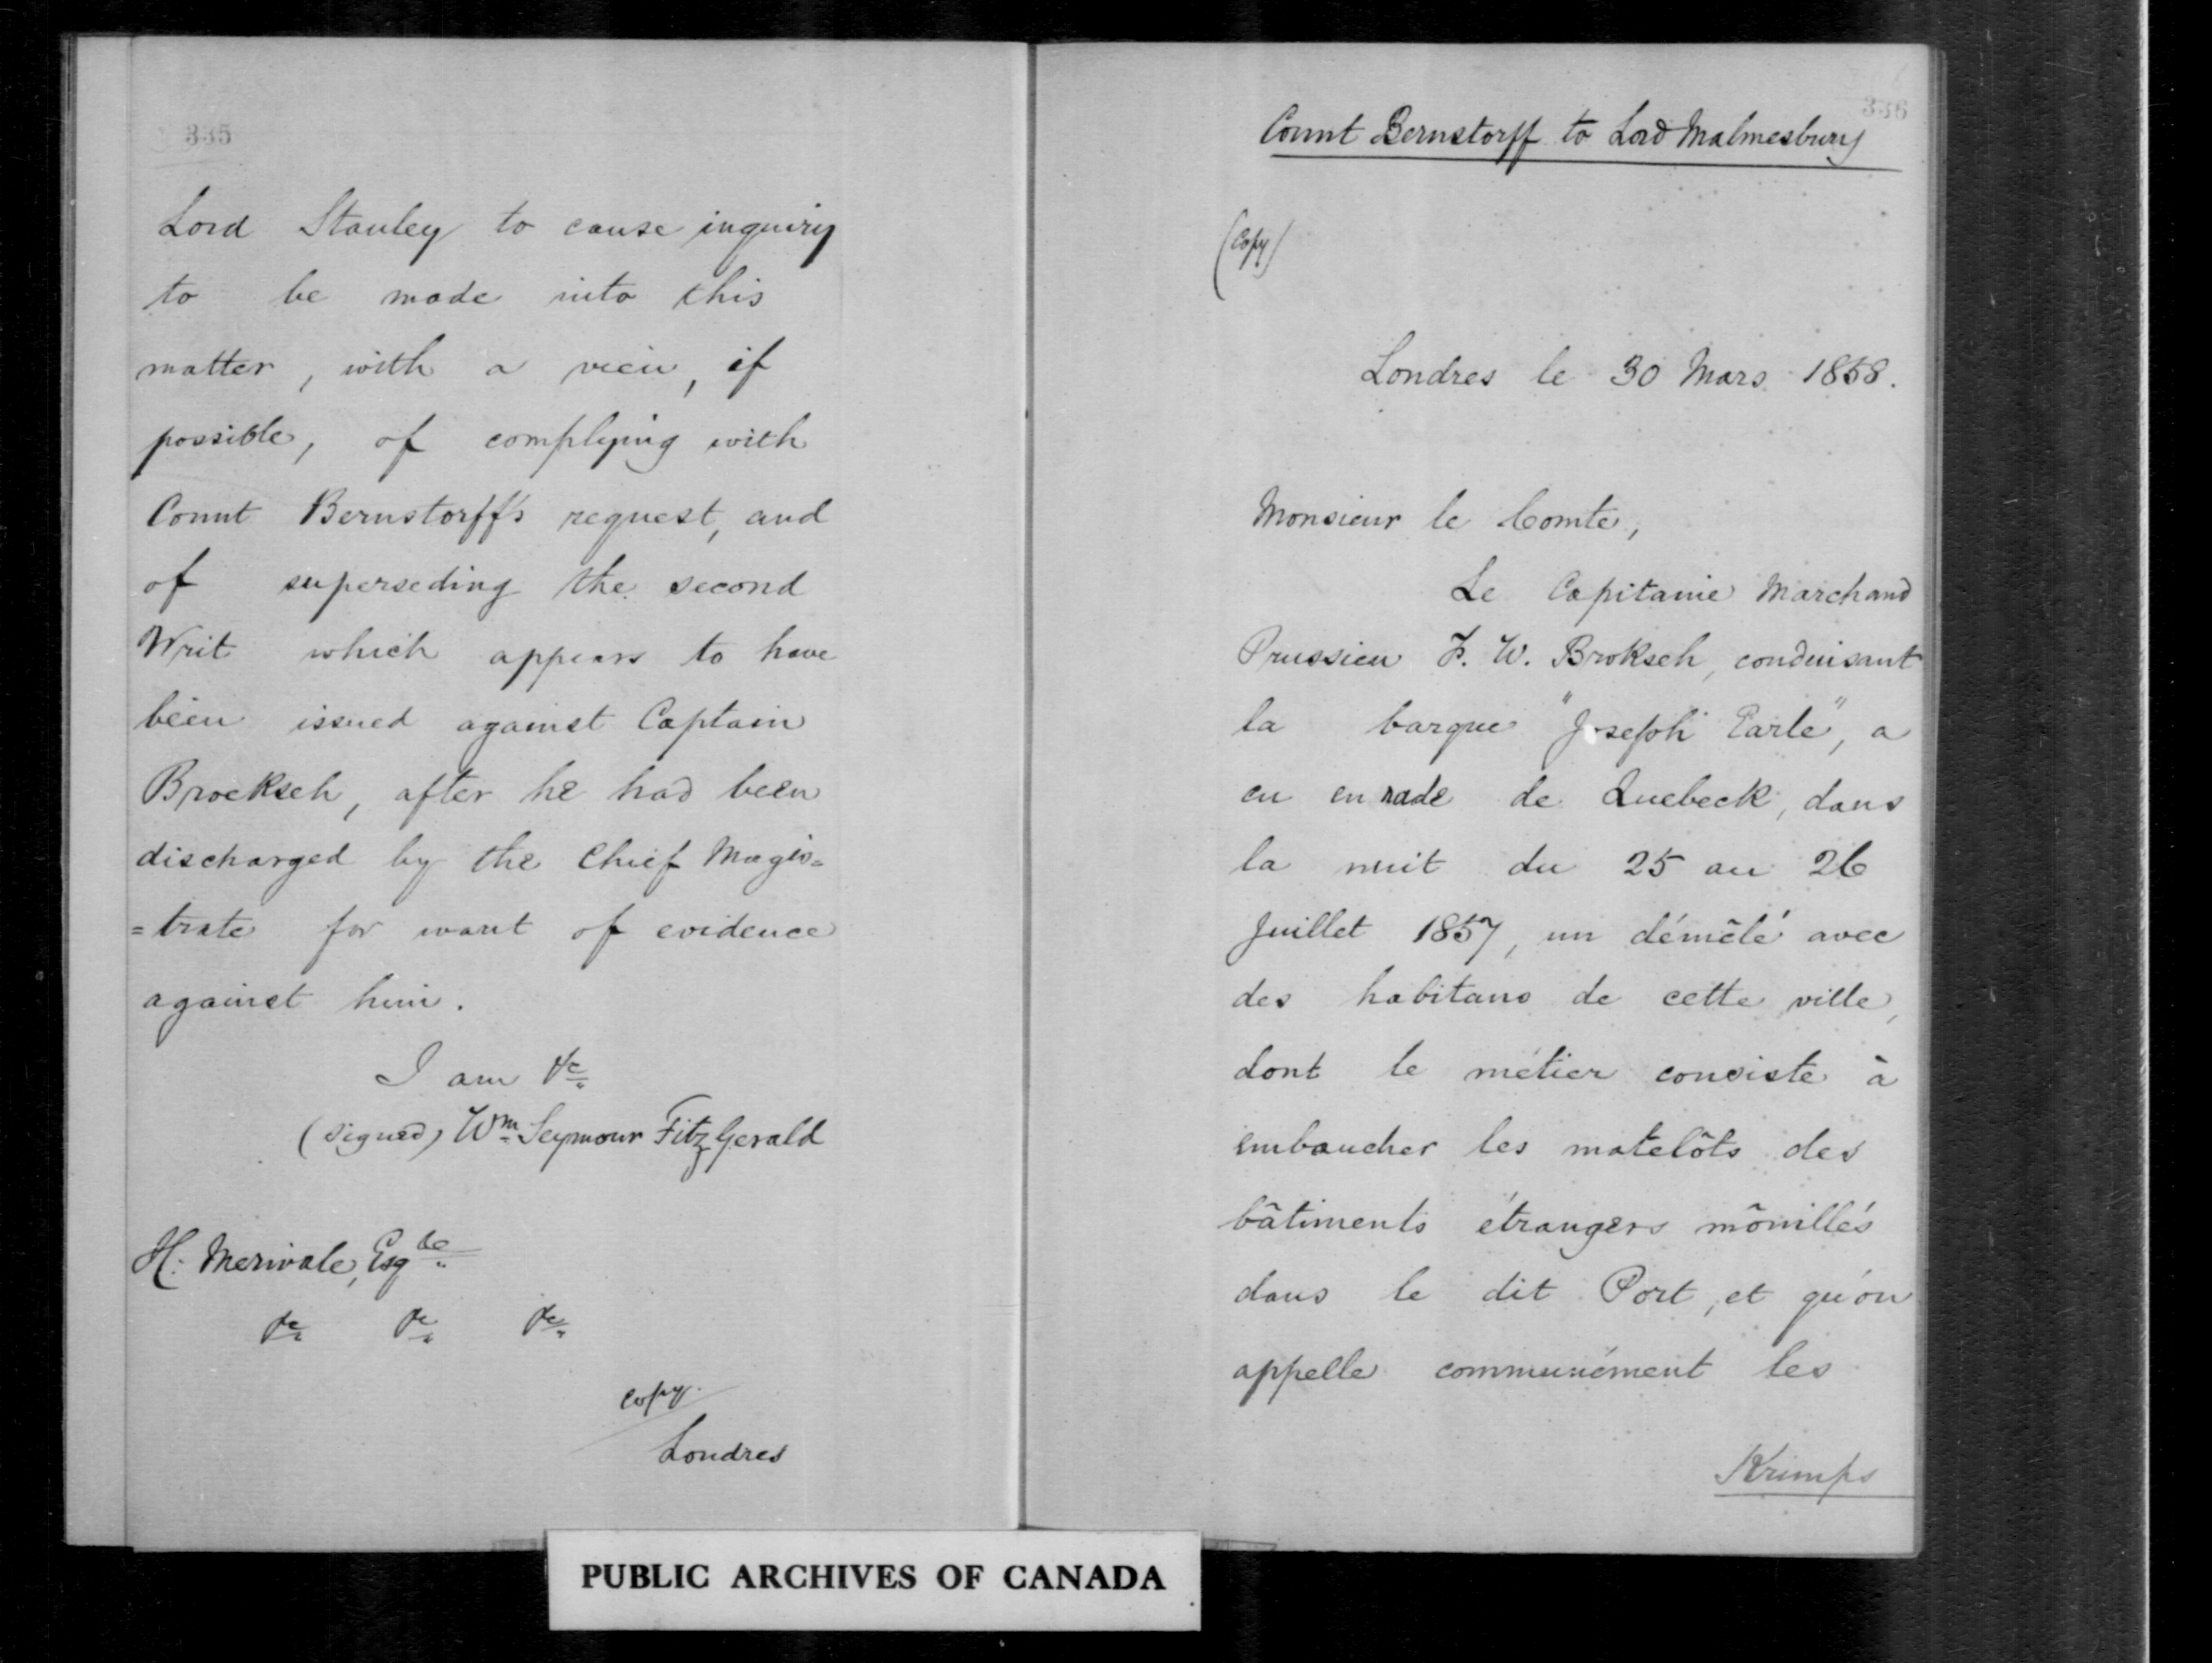 335
Lord Stanley to cause inquiry
to be made into this
matter, with a view, if
possible, of complying with
Count Bernstorff's request, and
of superseding the second
Writ which appears to have
been issued against Captain
Brocksch, after he had been
discharged by the Chief Magis=
=trate for want of evidence
against him.
I am &c
(signed) Wm Seymour FitzGerald
H. Merivale, Esqre
&c &c &c
copy.
Londres
336
Count Bernstorff to Lord Malmesbury
(Copy)
Londres le 30 Mars 1858.
Monsieur le Comte,
Le Capitaine Marchand
Prussien F. W. Broksch, conduisant
la barque "Joseph Earle", a
eu en rade de Quebeck, dans
la nuit du 25 au 26
Juillet 1857, un démêlé avec
des habitans de cette ville,
dont le métier consiste à
embaucher les matelôts des
bâtiments étrangers môuillés
dans le dit Port, et qu'on
appelle communément les
Krimps
PUBLIC ARCHIVES OF CANADA